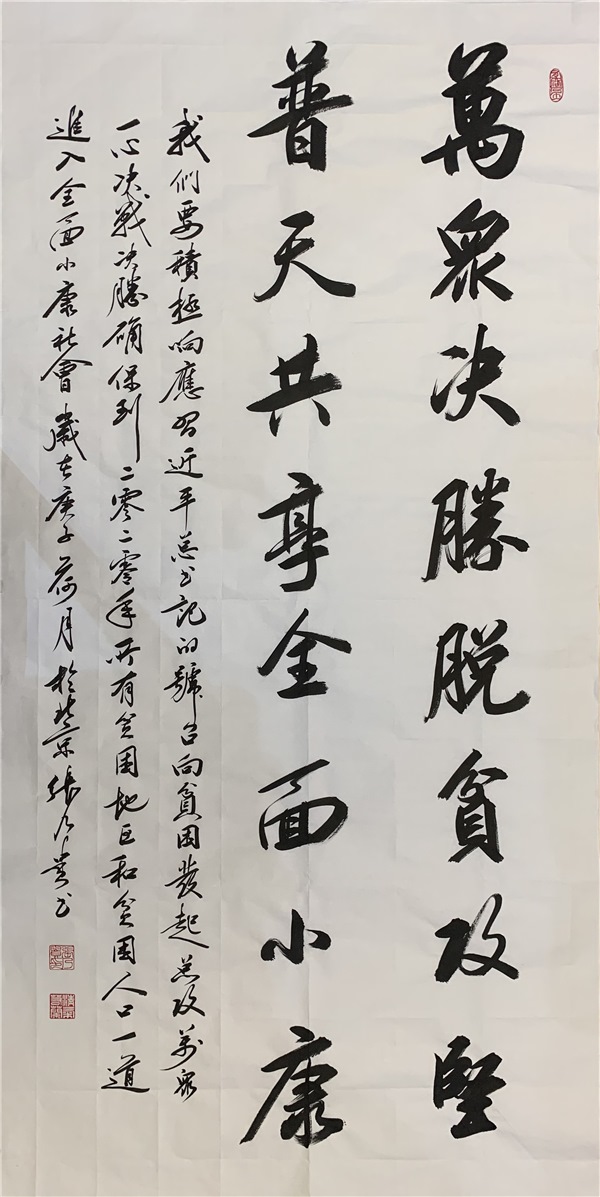 萬衆决勝脱貧攻堅
普天共享全面小康
我们要積極响應習近平总书記的號召向貧困發起总攻萬衆
一心决戰决勝确保到二零二零年所有贫困地区和贫困人口一道
進入全面小康社會歲在庚子荷月於北京張乃貴书